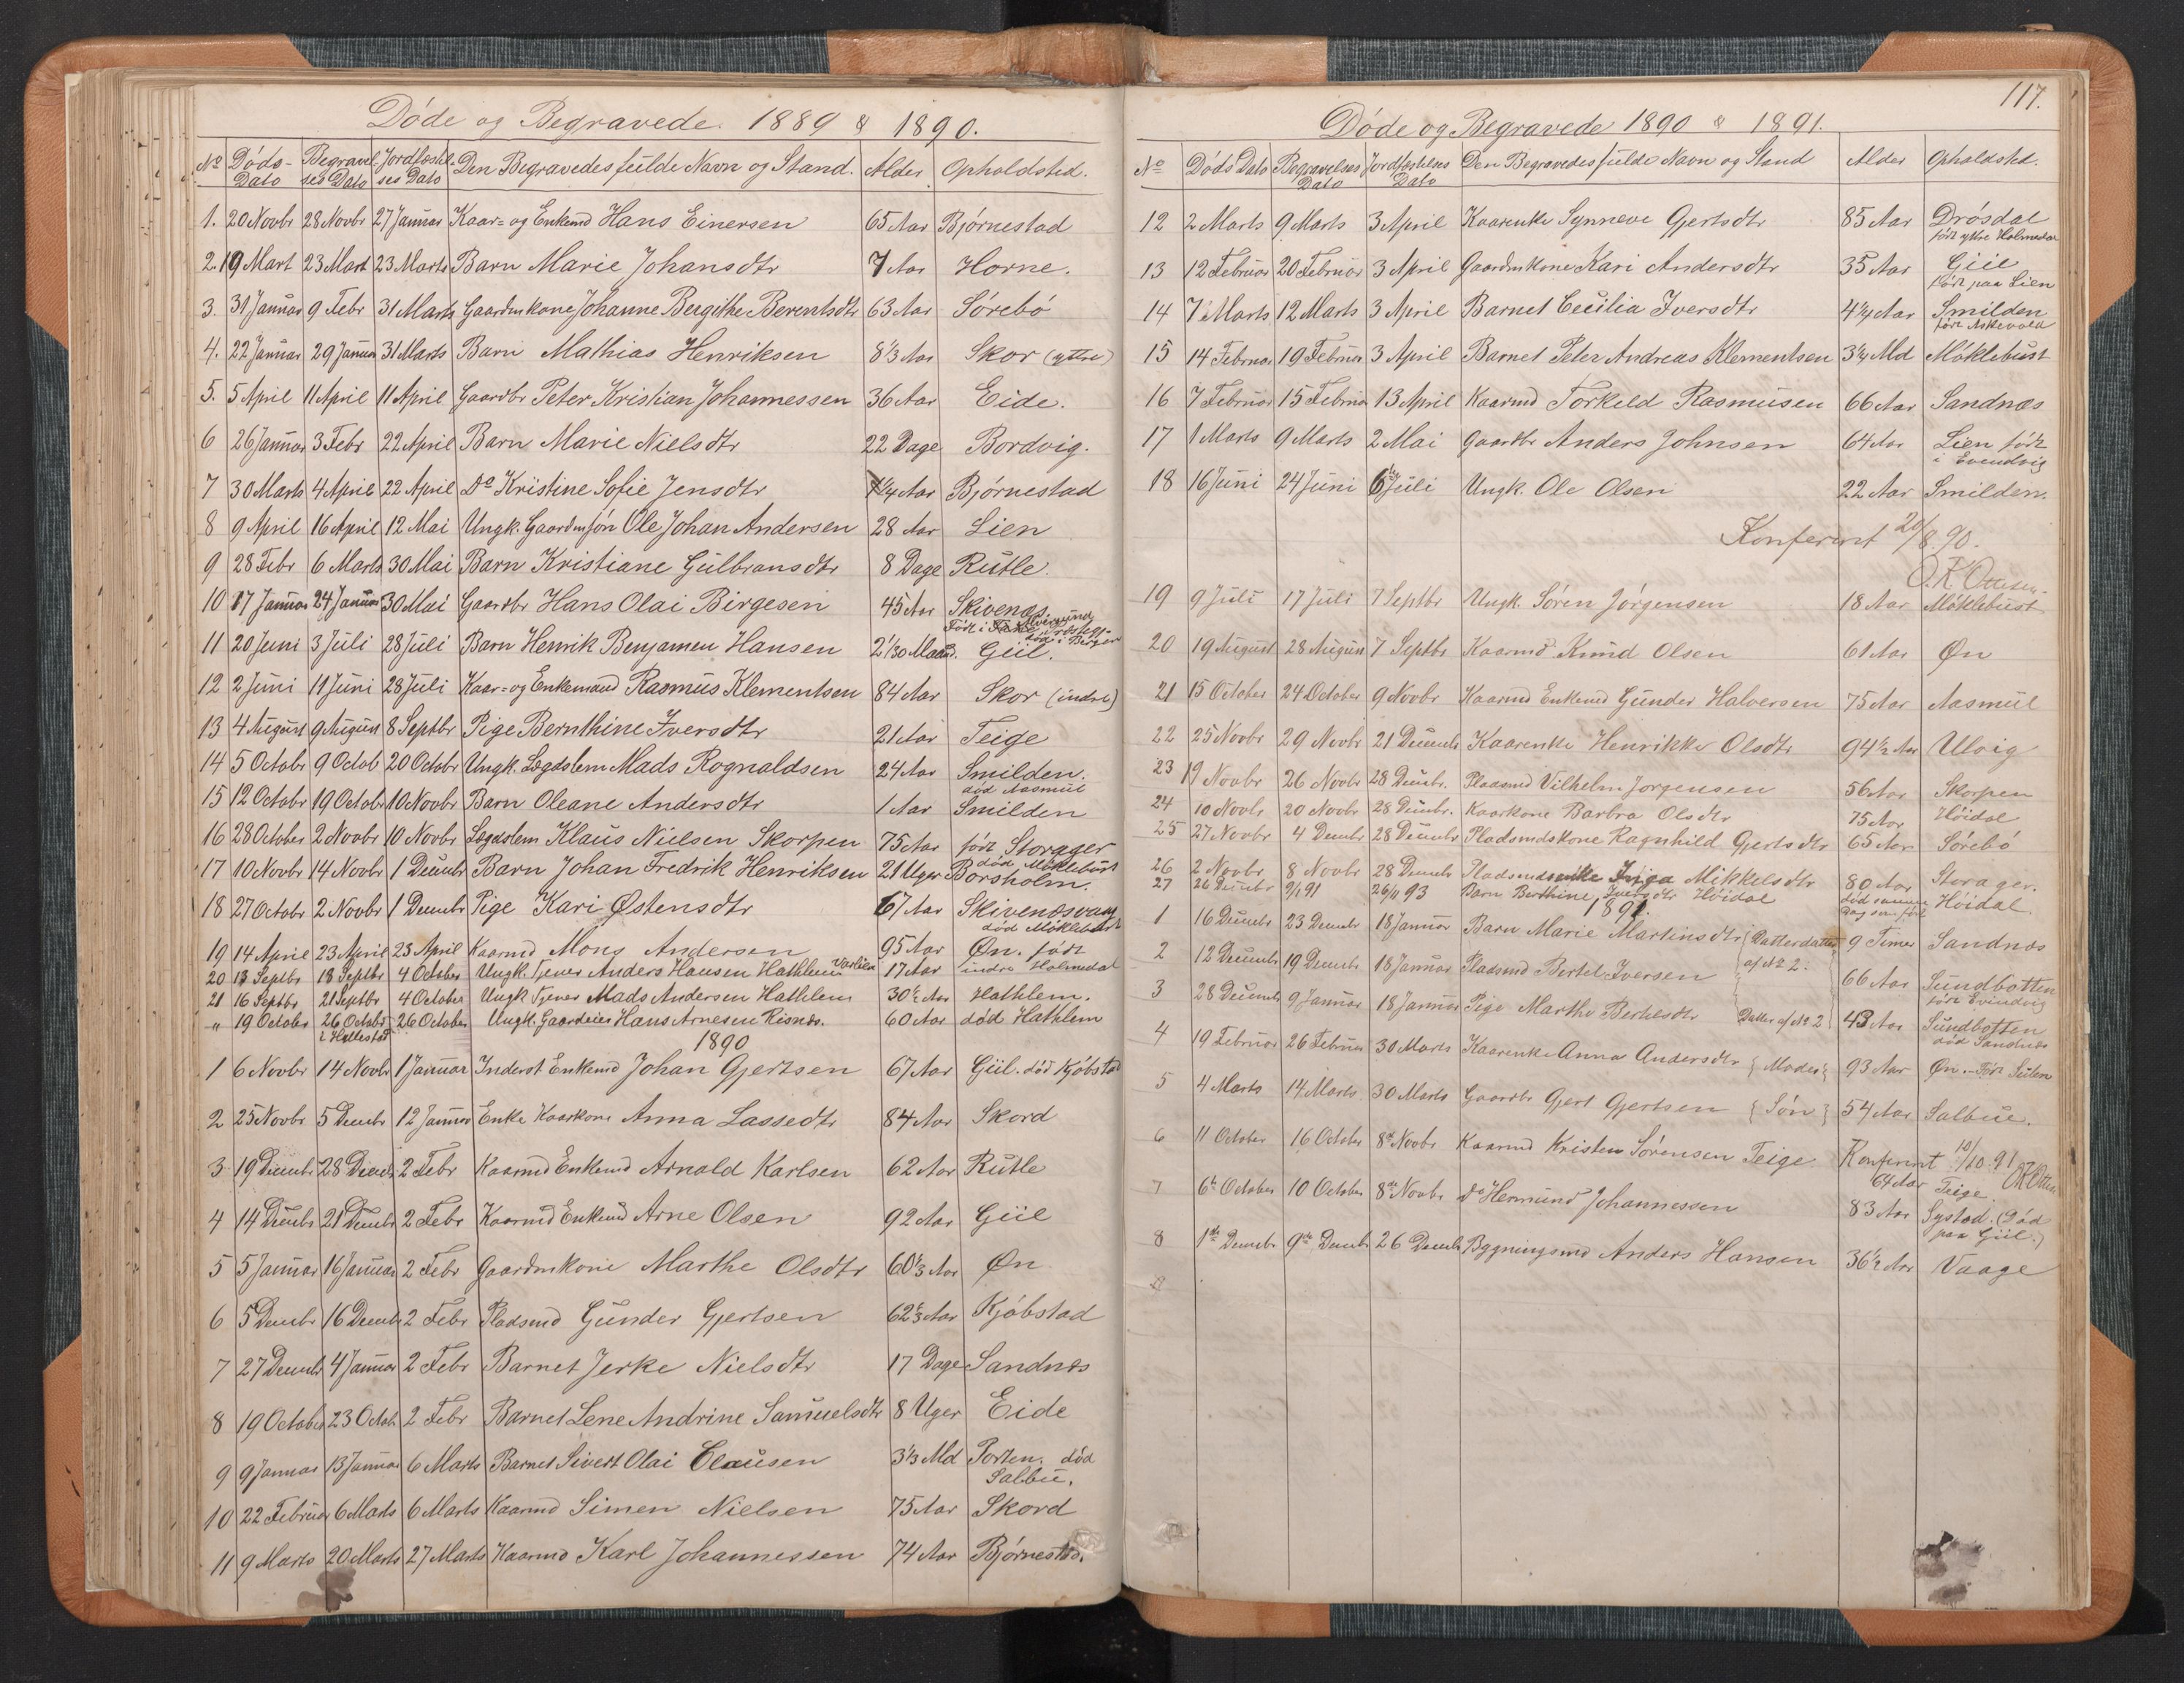 Døde og Begravede. 1889 & 1890.
No Døds-Dato Begravelses Dato Jordfæstelses Dato Den Begravedes fulde Navn og Stand. Alder Opholdsted.
1. 20 Novbr 28 Novbr 27 Januar Kaar- og Enkemd Hans Einersen 65 Aar Bjørnestad
2. 19 Mart 23 Mart 23 Marts Barn Marie Johansdtr 7 Aar Horne.
3. 31 Januar 9 Febr 31 Marts Gaardmkone Johanne Bergithe Berentsdtr 63 Aar Sørebø
4. 22 Januar 29 Januar 31 Marts Barn Mathias Henriksen 8 1/3 Aar Skor (yttre)
5. 5 April 11 April 11 April Gaardbr Peter Kristian Johannessen 36 Aar Eide.
6 26 Januar 3 Febr 22 April Barn Marie Nielsdtr 22 Dage Bordvig.
7 30 Marts 4 April 22 April Do Kristine Sofie Jensdtr 1/4 Aar Bjørnestad
8 9 April 16 April 12 Mai Ungk. Gaardmsøn Ole Johan Andersen 28 Aar Lien
9 28 Febr 6 Marts 30 Mai Barn Kristiane Gulbransdtr 8 Dage Rutle.
10 17 Januar 24 Januar 30 Mai Gaardbr Hans Olai Birgesen 45 Aar Skivenæs
Født i død i Bergen
11 20 Juni 3 Juli 28 Juli Barn Henrik Benjamen Hansen 2 1/30 Maan. Giil.
12 2 Juni 11 Juni 28 Juli Kaar- og Enkemand Rasmus Klementsen 84 Aar Skor (indre)
13 4 August 9 August 8 Septbr Pige Bernthine Iversdtr 21 Aar Teige
14 5 Octobr 9 Octob 20 Octobr Ungk. Lægdslem Mads Rognaldsen 24 Aar Smilden.
død Aasmul
15 12 Octobr 19 Octobr 10 Novbr Barn Oleane Andersdtr 1 Aar Smilden
16 28 October 2 Novbr 10 Novbr Lægdslem Klaus Nielsen Skorpen 75 Aar født Storager
død Møklebust
17 10 Novbr 14 Novbr 1 Decmbr Barn Johan Fredrik Henriksen 21 Uger Borsholm.
18 27 Octobr 2 Novbr 1 Decmbr Pige Kari Østensdtr 67 Aar Skivenæsvaag
død Møklebust
19 14 April 23 April 23 April Kaarmd Mons Andersen 95 Aar Øn. født
indre Holmedal
20 13 Septbr 18 Septbr 4 October Ungk. Tjener Anders Hansen Hathlem 17 Aar
21 16 Septbr 21 Septbr 4 October Ungk Tjener Mads Andersen Hathlem 30 1/2 Aar Hathlem.
" 19 October 26 Octobr i Hellestad 26 October Ungk. Gaardeier Hans Arnesen Risnæs. 60 Aar død Hathlem
1890
1 6 Novbr 14 Novbr 1 Januar Inderst Enkemd Johan Gjertsen 67 Aar Giil. død Kjøbstad
2 25 Novbr 5 Decmbr 12 Januar Enke Kaarkone Anna Lassedtr 84 Aar Skord
3 19 Decembr 28 Decmb 2 Febr Kaarmd Enkemd Arnold Karlsen 62 Aar Rutle
4 14 Decmbr 21 Decmbr 2 Febr Kaarmd Enkemd Arne Olsen 92 Aar Giil
5 5 Januar 16 Januar 2 Febr Gaardmkone Marthe Olsdtr 60 1/3 Aar Øn
6 5 Decmbr 16 Decmb 2 Febr Pladsmd Gunder Gjertsen 62 2/3 Aar Kjøbstad
7 27 Decmbr 4 Januar 2 Febr Barnet Jerke Nielsdtr 17 Dage Sandnæs
8 19 October 23 Octob. 2 Febr Barnet Lene Andrine Samuelsdtr 8 Uger Eide
9 9 Januar 13 Januar 6 Marts Barnet Sivert Olai Clausen 3 1/3 Md Porten. død
Salbu.
10 22 Februar 6 Marts 6 Marts Kaarmd Simen Nielsen 75 Aar Skord
11 9 Marts 20 Marts 27 Marts Kaarmd Karl Johannessen 74 Aar Bjørnestad.
117.
Døde og Begravede 1890 & 1891.
No Døds Dato Begravelses Dato Jordfæstelses Dato Den Begravedes fulde Navn og Stand Alder Opholdsted.
12 2 Marts 9 Marts 3 April Kaarenke Synneve Gertsdtr 85 Aar Drøsdal
født yttre Holmedal
13 12 Februar 20 Februar 3 April Gaardmkone Kari Andersdtr 35 Aar Giil
født paa Lien
14 7 Marts 12 Marts 3 April Barnet Cecilia Iversdtr 4 1/4 Aar Smilden
født Askevold
15 14 Februar 19 Februar 3 April Barnet Peter Andreas Klementsen 3 1/4 Md Møklebust
16 7 Februar 15 Februar 13 April Kaarmd Torkeld Rasmusen 66 Aar Sandnæs
17 1 Marts 9 Marts 2 Mai Gaardbr Anders Johnsen 64 Aar Lien født
i Evendvig
18 16 Juni 24 Juni 6 Juli Ungk. Ole Olsen 22 Aar Smilden.
Konferert 20/8.90.
O.K. Ottesen.
19 9 Juli 17 Juli 7 Septbr Ungk. Søren Jørgensen 18 Aar Møklebust
20 19 August 28 August 7 Septbr Kaarmd Knud Olsen 61 Aar Øn
21 15 October 24 October 9 Novbr Kaarmd Enkemd Gunder Halversen 75 Aar Aasmul
22 25 Novbr 29 Novbr 21 Decembr Kaarenke Henrikke Olsdtr 94 1/2 Aar Ulvig
23 19 Novbr 26 Novbr 28 Decmbr. Pladsmd Vilhelm Jørgensen 56 Aar Skorpen
24 10 Novbr 20 Novbr 28 Decmbr. Kaarkone Barbra Olsdtr 75 Aar Höidal
25 27 Novbr 4 Decmbr 28 Decembr Pladsmdskone Ragnhild Gjertsdtr 65 Aar Sørebø
26 2 Novbr 8 Novbr 28 Decmbr Pladsmdsenke Inga Mikkelsdtr 80 Aar Storager.
27 26 Decmbr 9/1 91 26/11 93 Barn Berthine Iversdtr Höidal død samme Dag som født Höidal.
1891.
1 16 Decmbr 23 Decmbr 18 Januar Barn Marie Martinsdtr {Datterdatter af No 2. 9 Timer Sandnæs
2 12 Decembr 19 Decmbr 18 Januar Pladsmd Bertel Iversen 66 Aar Sundbotten
født Evindvig
3 28 Decembr 9 Januar 18 Januar Pige Marthe Bertelsdtr Datter af No 2 43 Aar Sundbotten
død Sandnæs
4 19 Februar 26 Februar 30 Marts Kaarenke Anna Andersdtr {Moder} 93 Aar Øn. - Født Sulen
5 4 Marts 14 Marts 30 Marts Gaardbr Gjert Gjertsen {Søn} 54 Aar Salbue.
Konferert 10/10.91 OKOttesen
6 11 October 16 October 8de Novbr Kaarmd Kristen Sørensen Teige 64 Aar Teige.
7 6te October 10 October 8de Novbr do Hermund Johannessen 83 Aar Systad. (Død
paa Giil.)
8 1ste Decmbr. 9de Decmbr 26 Decmbr Bygningsmd Anders Hansen 36 1/2 Aar Vaage